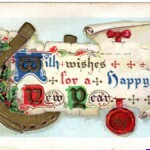 With wishes
for a Happy
New Year.